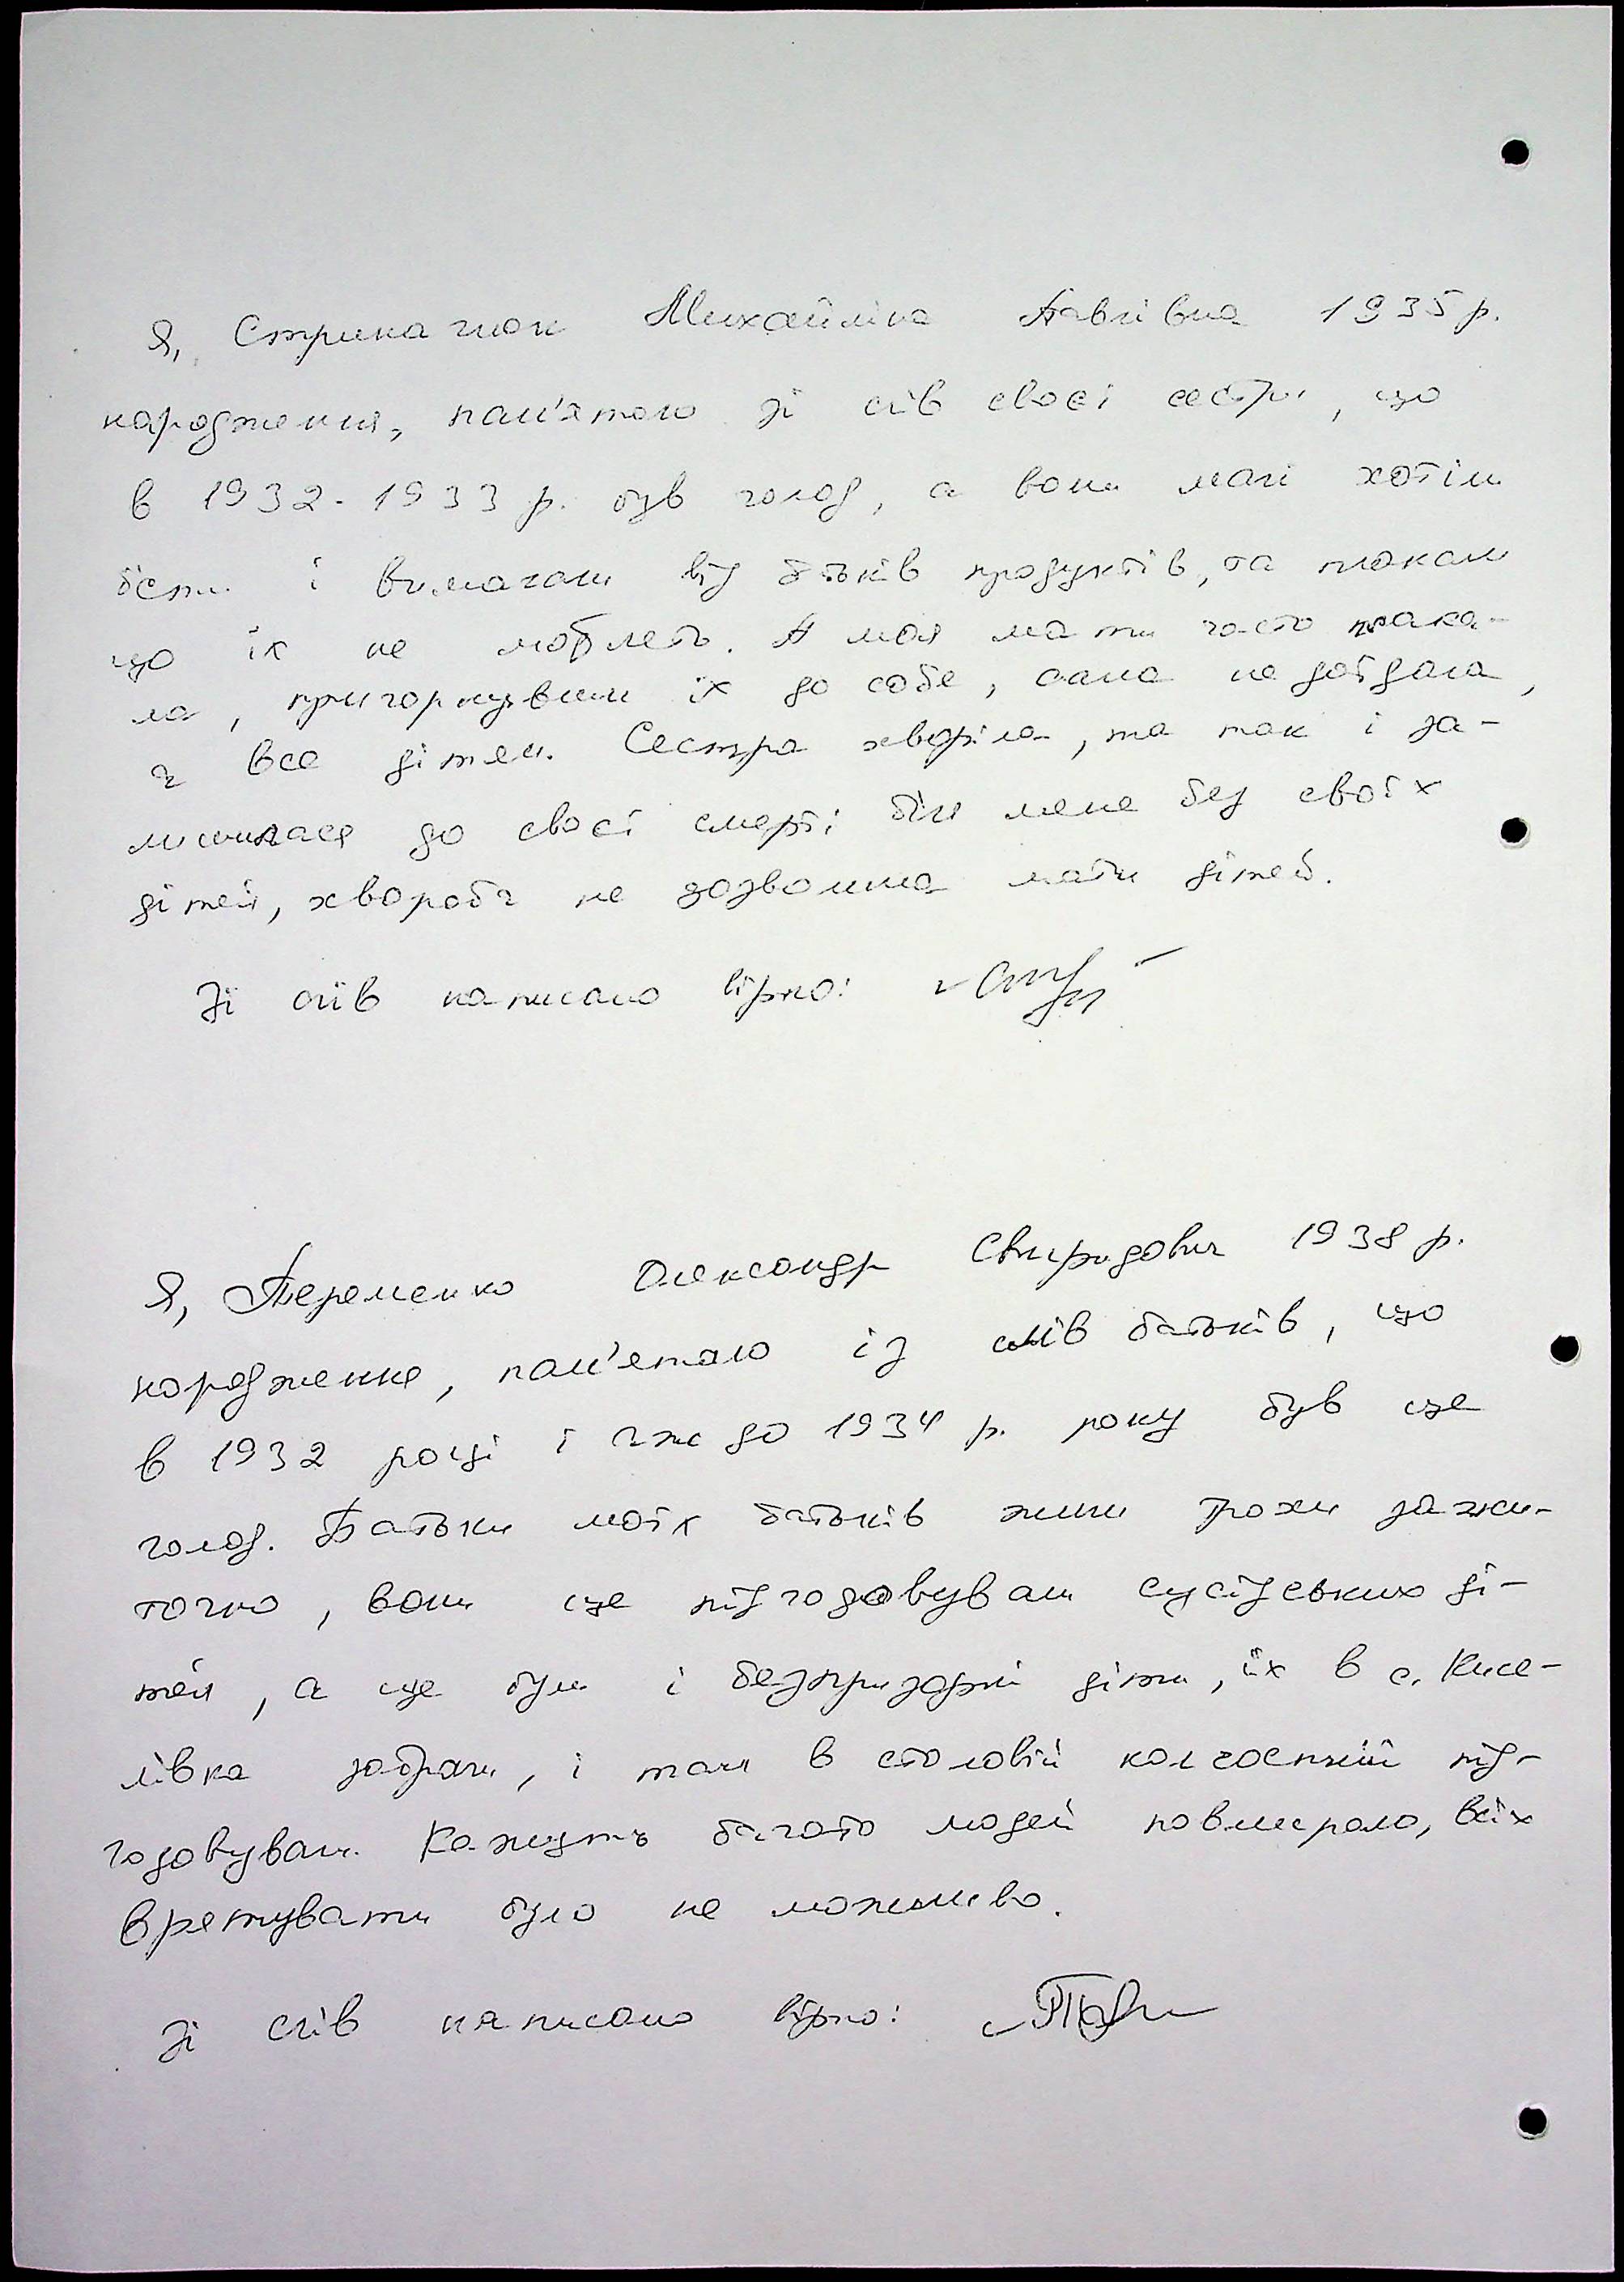 Я, Стрикатюк Михайліна Павлівна 1935 р.
народження, пам'ятаю зі слів своєї сестри, що
в 1932-1933 р. був голод, а вони малі хотіли
їсти і вимагали від батьків продуктів, та плакали
що їх не люблять. А моя мати часто плака-
ла, пригорнувши їх до себе, сама не доїдала,
а все дітям. Сестра хворіла, та так і за-
лишилася до своєї смерті біля мене без своїх
дітей, хвороба не дозволила мати дітей.
Зі слів написано вірно:
Я, Яременко Олександр Свиридович 1938 р.
народження, пам'ятаю із слів батьків, що
в 1932 році і аж до 1934 р. року був це
голод. Батьки моїх батьків жили трохи зажи-
точно, вони ще підгодовували сусідських ді-
тей, а ще були і безпризорні діти, їх в с. Кисе-
лівка забрали, і там в столовій колгоспній під-
годовували. Кажуть багато людей повмирало, всіх
врятувати було не можливо.
Зі слів написано вірно: